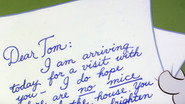 Dear Tom:
I am arriving
today for a visit with
you — I do hope
there are no mice
the house. You
brighten